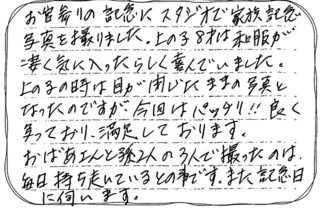 お宮参りの記念にスタジオで家族記念
写真を撮りました。上の子8才は和服が
凄く気に入ったらしく喜んでいました。
上の子の時は目が閉じたままの写真と
なったのですが今回はバッチリ!!良く
笑っており、満足しております。
おばあちゃんと孫2人の3人で撮ったのは、
毎日持ち走いているとの事です。また記念日
に伺います。